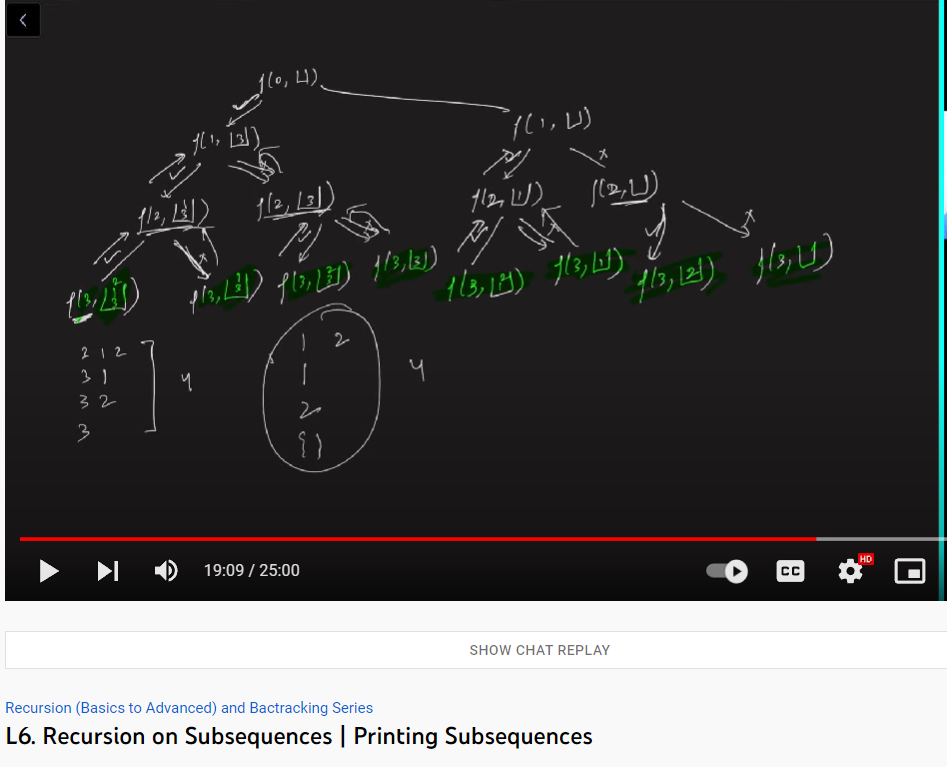 f(0, [])
f(1, [3]) f(1, [])
f(2, [3 1]) f(2, [3]) f(2, [1]) f(2, [])
f(3, [3 1 2]) f(3, [3 1]) f(3, [3 2]) f(3, [3]) f(3, [1 2]) f(3, [1]) f(3, [2]) f(3, [])
1 2
2 1 2
3 1 4 1 4
3 2 2
3 { }
19:09 / 25:00 CC HD
SHOW CHAT REPLAY
Recursion (Basics to Advanced) and Bactracking Series
L6. Recursion on Subsequences | Printing Subsequences